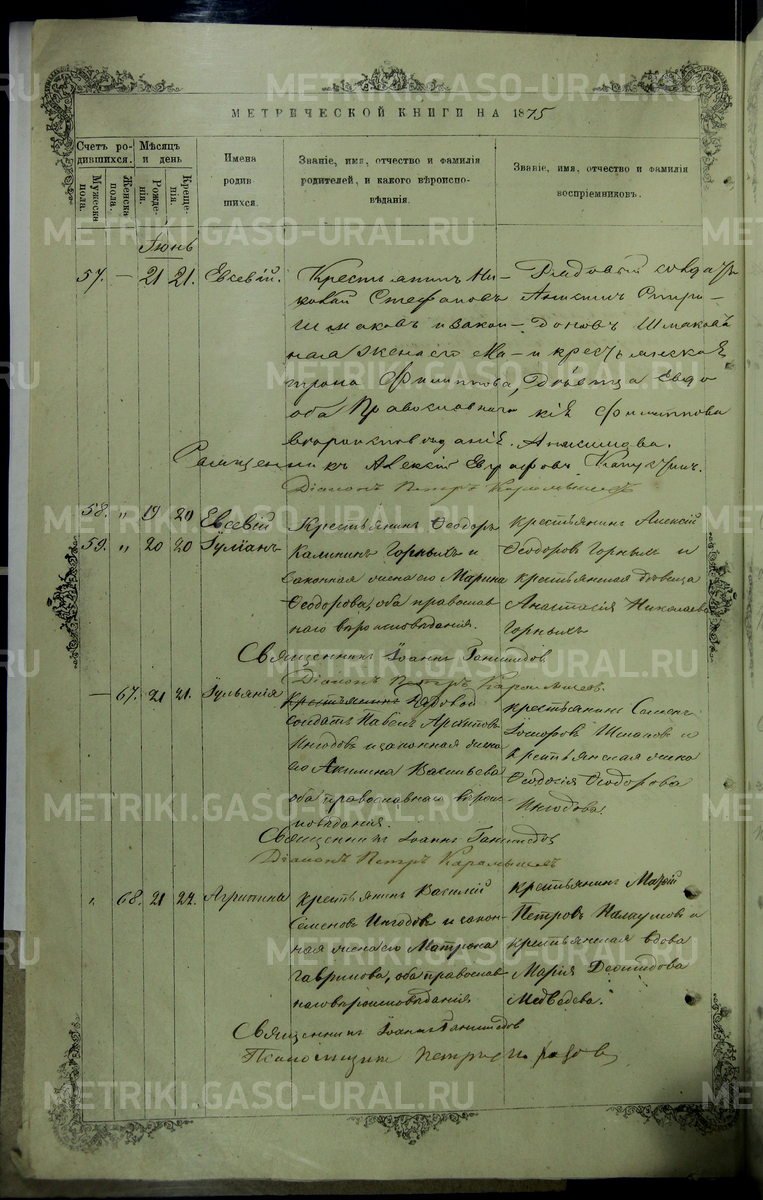 МЕТРИЧЕСКОЙ КНИГИ НА 1875
Счетъ ро-
дившихся.
Мѣсяцъ
и день
Мужеска
пола.
Женска
пола.
Рожде-
нія.
Креще-
нія.
Имена
родив-
шихся.
Званіе, имя, отчество и фамилія
родителей, и какого вѣроиспо-
вѣданія.
Званіе, имя, отчество и фамилія
воспріемниковъ.
Іюнь
57. — 21 21. Евсевій.
Крестьянинъ Ни-
колай Стефановъ
Шмаковъ и закон-
ная жена его Ма-
трона Филиппова,
оба Православнаго
вѣроисповѣданія.
Рядовый солдатъ
Анисимъ
Шмаковъ
и крестьянская
Дѣвица Евдо
кія Филиппова
Анисимова.
Священникъ Алексій Евграфовъ
Діаконъ Петръ Карамышевъ
58. " 19 20 Евсевій
59. " 20 20 Іуліанъ
Крестьянинъ Ѳеодоръ
Калининъ Горныхъ и
законная жена его Марина
Ѳеодорова, оба православ
наго вѣроисповѣданія.
крестьянинъ Алексій
Ѳеодоровъ Горныхъ и
крестьянская дѣвица
Анастасія Николаева
Горныхъ
Священникъ Іоаннъ Ганимедовъ
Діаконъ Петръ Карамышевъ.
— 67. 21 21. Іульянія
Крестьянинъ Рядовой
солдатъ Павелъ Архиповъ
Ингодовъ и законная жена
его Акилина Васильева
оба православнаго вѣроис-
повѣданія.
крестьянинъ Семенъ
Шмаковъ и
крестьянская жена
Ѳеодосія Ѳеодорова
Ингодова.
Священникъ Іоаннъ Ганимедовъ
Діаконъ Петръ Карамышевъ
68. 21 24. Агрипина
Крестьянинъ Василій
Семеновъ Ингодовъ и закон-
ная жена его Матрона
Гаврилова, оба православ
наго вѣроисповѣданія
крестьянинъ
Петровъ и
крестьянская вдова
Марія
Медвѣдева.
Священникъ Іоаннъ Ганимедовъ
Псаломщикъ Петръ
METRIKI.GASO-URAL.RU